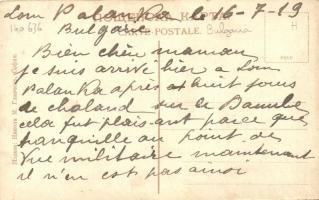 Lom Palanka le 16-7-19
Bulgarie
CARTE POSTALE. Bulgaria
140 676
Bien chère maman
je suis arrivé hier a Lom
Palanka après huit jours
de chaland sur le Danube
cela fut plaisant parce que
tranquille au point de
vue militaire maintenant
il n'en est pas ainsi